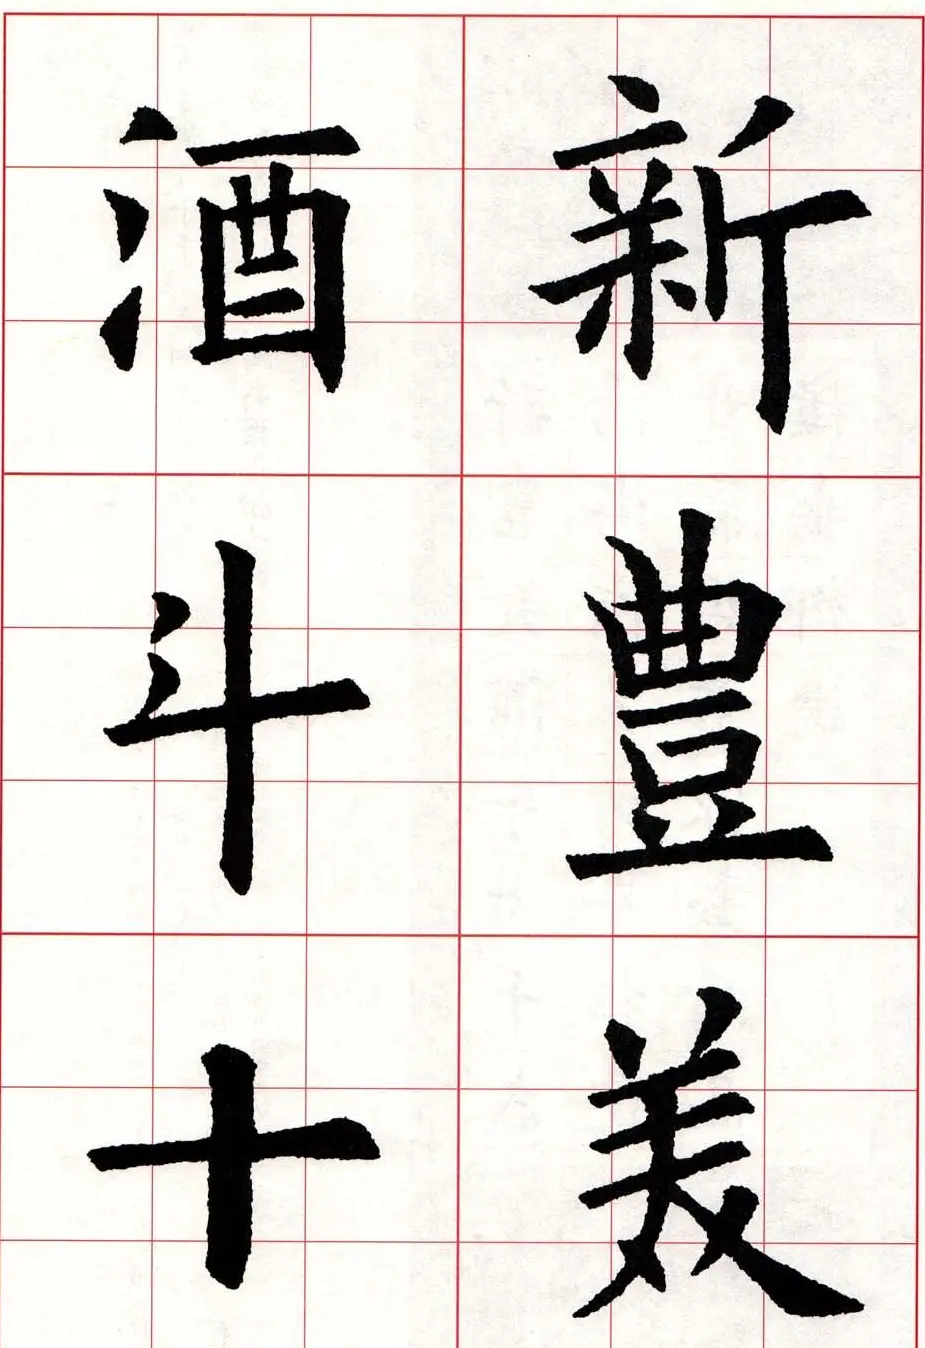 新豊美
酒斗十